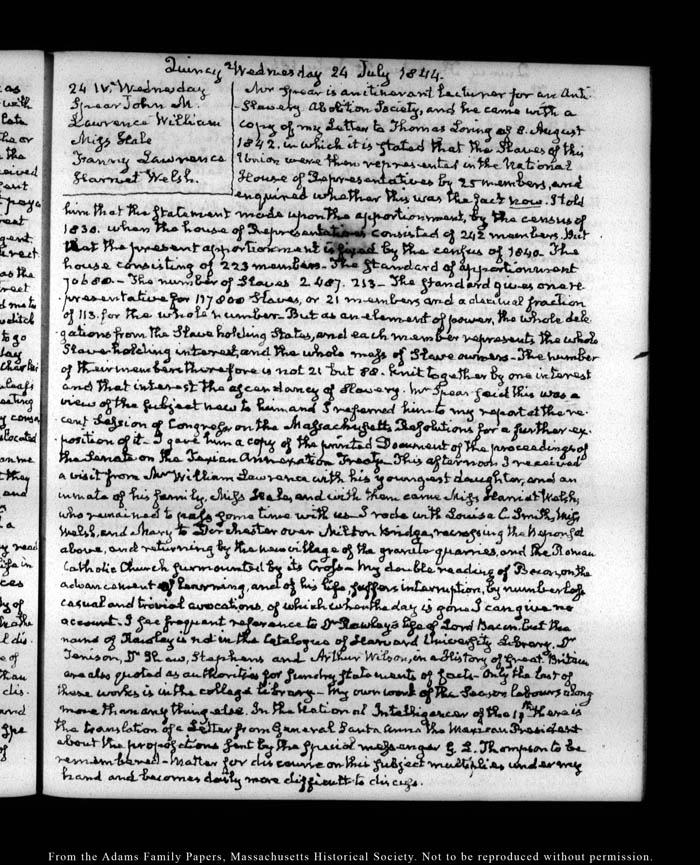 Quincy Wednesday 24 July 1844.
24 IV. Wednesday
Spear John M.
Lawrence William
Miss Hale
Fanny Lawrence
Harriet Welsh.
Mr Spear is an itinerant Lecturer for an Anti-
Slavery Abolition Society, and he came with a
copy of my Letter to Thomas Loring of 8. August
1842. in which it is stated that the Slaves of this
Union were then represented in the National
House of Representatives by 25 members, and
enquired whether this was the fact now. I told
him that the statement made upon the apportionment, by the census of
1830. when the house of Representatives consisted of 242 members. But
that the present apportionment is fixed by the census of 1840. The
house consisting of 223 members. The standard of apportionment
70680 – The number of Slaves 2.487.213 – The standard gives one re-
presentative for 117800 Slaves, or 21 members and a decimal fraction
of 113. for the whole number. But as an element of power, the whole dele-
gations from the Slave holding States, and each member represents the whole
Slave-holding interest, and the whole mass of Slave owners – The number
of their members therefore is not 21 but 88. knit together by one interest
and that interest the ascendancy of slavery. Mr Spear said this was a
view of the subject new to him, and I referred him to my report at the re-
cent Session of Congress, on the Massachusetts Resolutions for a further ex-
position of it – I gave him a copy of the printed Document of the proceedings of
the Senate on the Texian Annexation Treaty. This afternoon I received
a visit from Mr William Lawrence with his youngest daughter, and an
inmate of his family, Miss Hale, and with them came Miss Harriet Welsh,
who remained to pass some time with us. I rode with Louisa C. Smith, Miss
Welsh, and Mary to Dorchester over Milton Bridge, recrossing the Neponset
above, and returning by the new village of the granite quarries, and the Roman
Catholic Church surmounted by its Cross – My double reading of Bacon, on the
advancement of Learning, and of his life, suffers interruption, by numberless
casual and trivial avocations, of which when the day is gone I can give no
account. I see frequent reference to Dr Rawley's life of Lord Bacon. but the
name of Rawley is not in the Catalogue of Harvard University Library. Dr
Tenison, Dr Shaw, Stephens and Arthur Wilson, in a History of Great Britain
are also quoted as authorities for sundry statements of facts – Only the last of
these works is in the college library – My own work of the Season labours along
more than any thing else. In the National Intelligencer of the 19th there is
the translation of a Letter from General Santa Anna the Mexican President
about the propositions sent by the special messenger G. L. Thompson to be
remembered – Matter for discourse on this subject multiplies under my
hand and becomes daily more difficult to discuss.
From the Adams Family Papers, Massachusetts Historical Society. Not to be reproduced without permission.